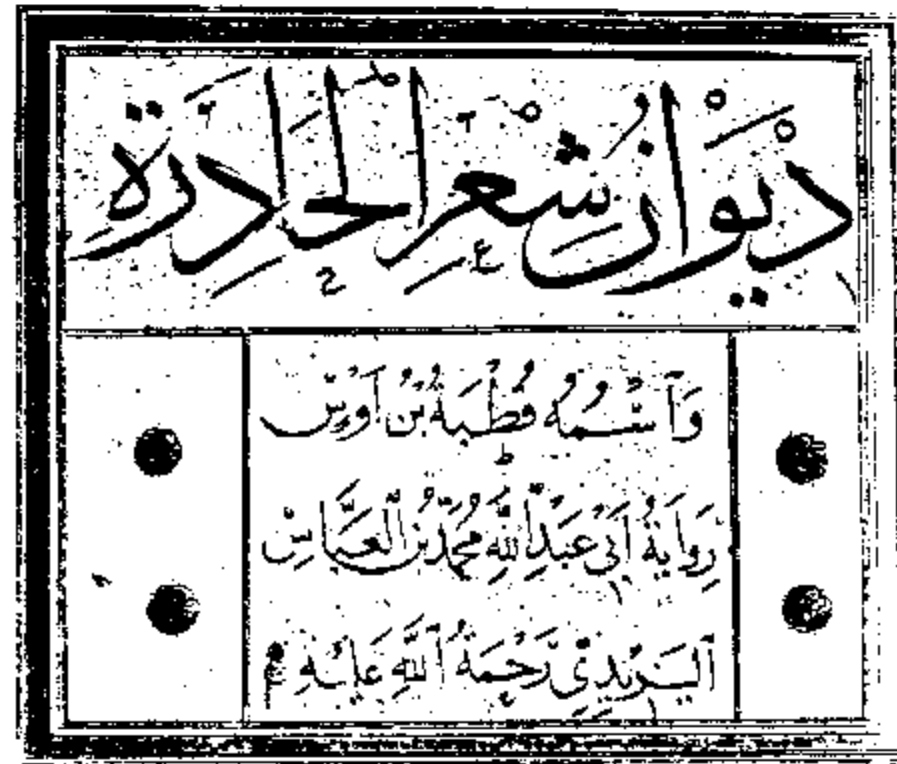 دِيْوَانُ شِعْرِ الْحَادِرَةِ
وَٱسْمُهُ قُطْبَةُ بْنُ أَوْسٍ
رِوَايَةُ أَبِي عَبْدِ ٱللَّهِ مُحَمَّدِ بْنِ ٱلْعَبَّاسِ
ٱلْيَزِيْدِيِّ رَحْمَةُ ٱللَّهِ عَلَيْهِ